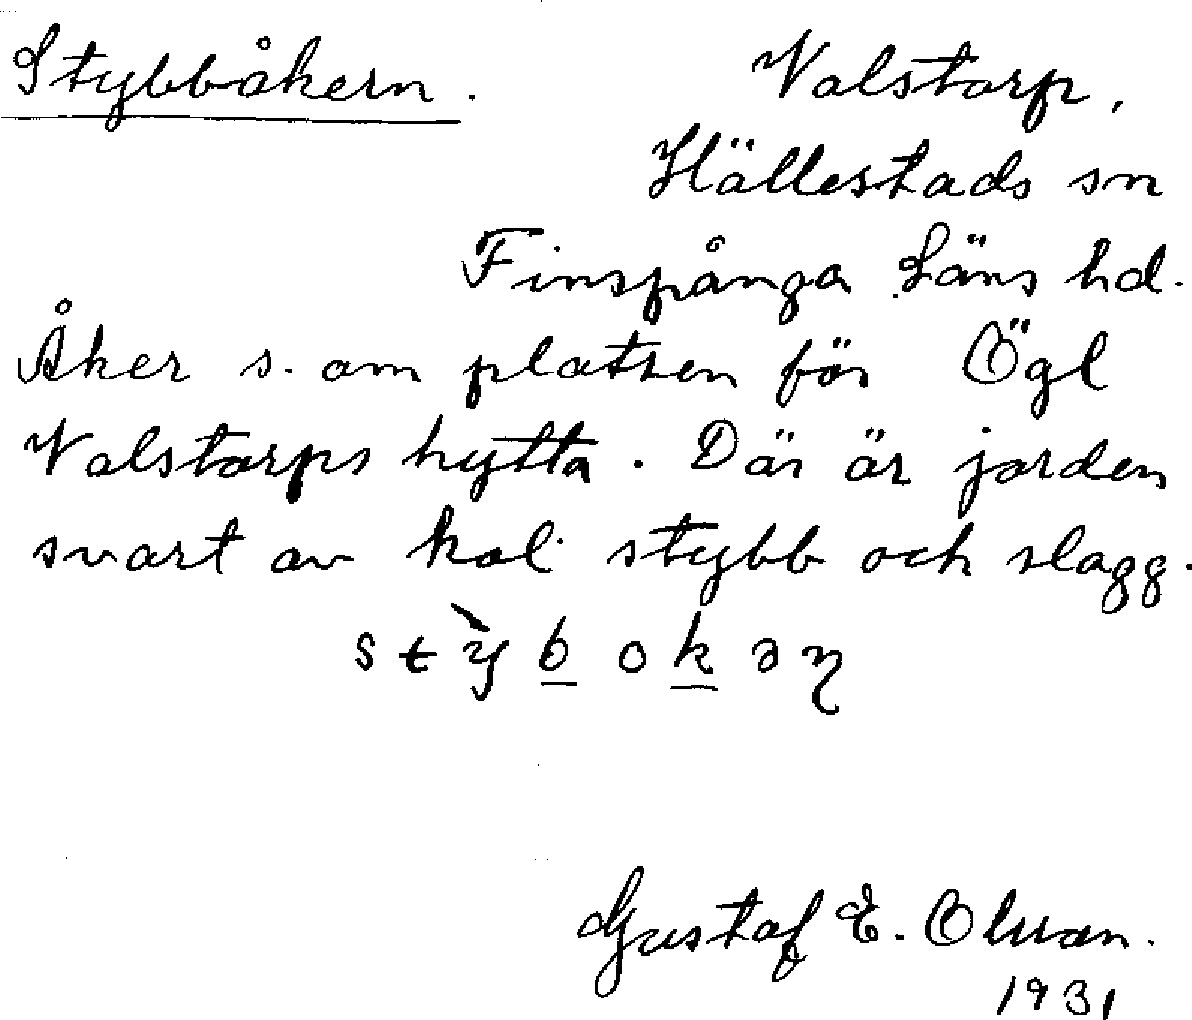 Stybbåkern. Valstorp,
Hällestads sn
Finspånga Läns hd.
Åker s. om platsen för Ögl
Valstorps hytta. Där är jorden
svart av kol stybb och slagg.
stỳb̲ok̲əɳ
Gustaf E. Olsson.
1931